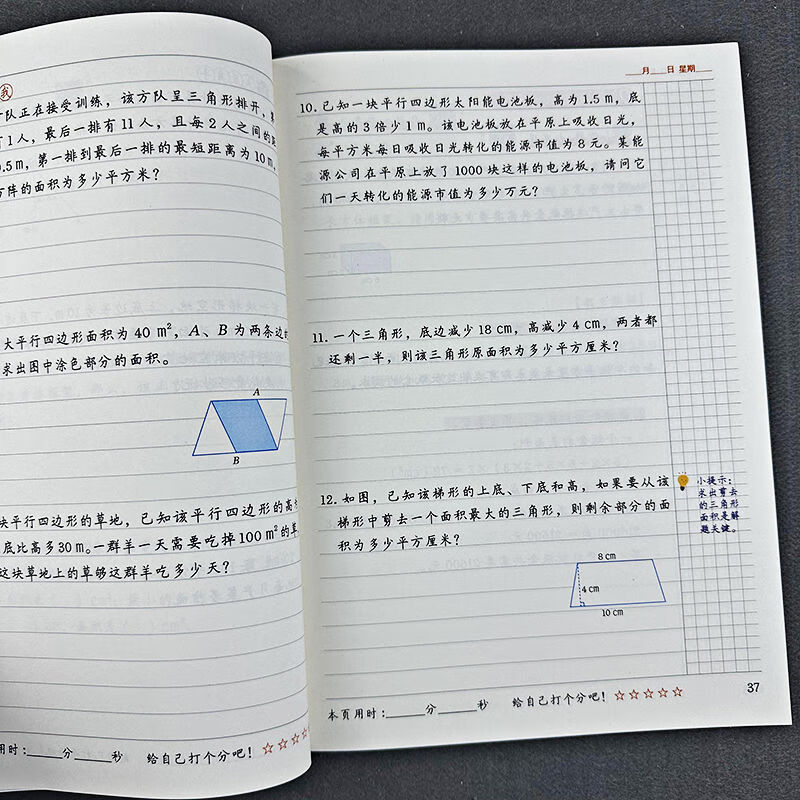 我
队正在接受训练，该方队呈三角形排开，
1人，最后一排有11人，且每2人之间的
.5m，第一排到最后一排的最短距离为10m，
方阵的面积为多少平方米？
大平行四边形面积为 40 m²，A、B 为两条边
求出图中涂色部分的面积。
A
B
块平行四边形的草地，已知该平行四边形的高
底比高多30 m。一群羊一天需要吃掉100 m²的草
这块草地上的草够这群羊吃多少天？
用时：____分____秒 给自己打个分吧！☆☆☆☆
月 日 星期
10. 已知一块平行四边形太阳能电池板，高为1.5 m，底
是高的3倍少1 m。该电池板放在平原上吸收日光，
每平方米每日吸收日光转化的能源市值为8元。某能
源公司在平原上放了1000块这样的电池板，请问它
们一天转化的能源市值为多少万元？
11. 一个三角形，底边减少18 cm，高减少4 cm，两者都
还剩一半，则该三角形原面积为多少平方厘米？
12. 如图，已知该梯形的上底、下底和高，如果要从该
梯形中剪去一个面积最大的三角形，则剩余部分的面
积为多少平方厘米？
小提示：
求出剪去
的三角形
面积是解
题关键。
8 cm
4 cm
10 cm
本页用时：____分____秒 给自己打个分吧！☆☆☆☆☆
37